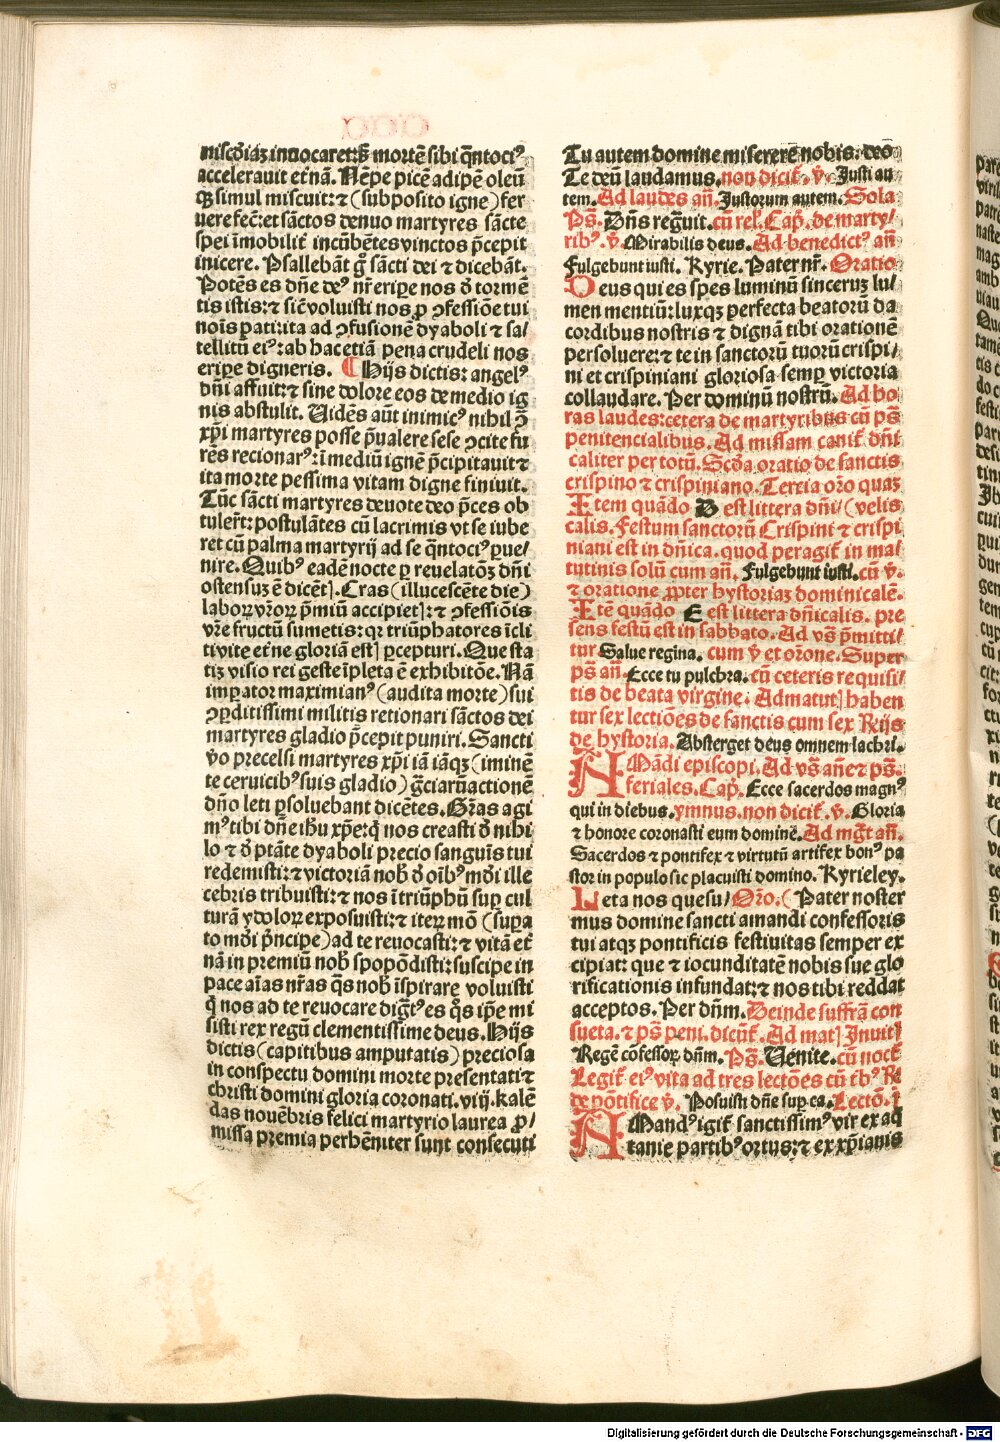 misc̄diaȝ inuocaret: s; mortē sibi q̄ntoci⁹
accelerauit et̄nā. Nēpe picē adipē oleū
qȝ simul miscuit: ⁊ (subposito igne) fer
uere fec̄: et sāctos denuo martyres sācte
spei īmobilit̄ incūbētes vinctos p̄cepit
inicere. Psallebāt ḡ sācti dei ⁊ dicebāt.
Potēs es dn̄e de⁹ nr̄ eripe nos đ tormē
tis istis: ⁊ sic̄ voluisti nos ꝓ ꝯfessiōe tui
noīs pati: ita ad ꝯfusionē dyaboli ⁊ sa/
tellitū ei⁹: ab hac etiā pena crudeli nos
eripe digneris. ¶ Hijs dictis: angel⁹
dn̄i affuit: ⁊ sine dolore eos de medio ig
nis abstulit. Uidēs aūt inimic⁹ nihil ꝯ̄
xp̄i martyres posse p̄ualere sese ꝯcite fu
rēs recionar⁹: ī mediū ignē p̄cipitauit ⁊
ita morte pessima vitam digne finiuit.
Tūc sācti martyres deuote deo p̄ces ob
tuler̄t: postulātes cū lacrimis vt se iube
ret cū palma martyrij ad se q̄ntoci⁹ ꝑue/
nire. Quib⁹ eadē nocte ꝑ reuelatōȝ dn̄i
ostensuȝ ē dicēt]. Cras (illucescēte die)
laboꝝ vr̄oꝝ p̄miū accipiet]: ⁊ ꝯfessiōis
vr̄e fructū sumetis: qr triūphatores īcli
ti vite et̄ne gloriā est] ꝑcepturi. Que sta
tiȝ visio rei geste īpleta ē exhibitōe. Nā
imꝑator maximian⁹ (audita morte) sui
ꝯꝑditissimi militis retionari sāctos dei
martyres gladio p̄cepit puniri. Sancti
v̊o precelsi martyres xp̄i iā iāqȝ (iminē
te ceruicib⁹ suis gladio) ḡciarū actionē
dn̄o leti ꝑsoluebant dicētes. Grās agi
m⁹ tibi dn̄e ihū xp̄e: q̄ nos creasti đ nihi
lo ⁊ đ ptāte dyaboli precio sanguīs tui
redemisti: ⁊ victoriā nob̄ đ oīb⁹ mđi ille
cebris tribuisti: ⁊ nos ī triūphū suꝑ cul
turā ydoloꝝ exposuisti: ⁊ iteꝝ mō (suꝑa
to mđi p̄ncipe) ad te reuocasti: ⁊ vitā et̄
nā in premiū nob̄ spopōdisti: suscipe in
pace aīas nr̄as q̄s nob̄ īspirare voluisti
q̄ nos ad te reuocare digt̄⁹ es q̊s ip̄e mi
sisti rex regū clementissime deus. Hijs
dictis (capitibus amputatis) preciosa
in conspectu domini morte presentati ⁊
christi domini gloria coronati. viij. kalē
das nouēbris felici martyrio laurea ꝓ/
missa premia perhēniter sunt consecuti
Tu autem domine miserere nobis. deō
Te deū laudamus. non dicit̄. v̄. Justi au
tem. Ad laudes an̄. Justorum autem. Sola
Ps̄. Dn̄s regnuit. cū rel̄. Cap̄. de marty/
rib⁹. v̄. Mirabilis deus. Ad benedict⁹ an̄
Fulgebunt iusti. Kyrie. Pater nr̄. Oratio
Deus qui es spes luminū sinceruȝ lu/
men mentiū: luxqȝ perfecta beatorū da
cordibus nostris ⁊ dignā tibi orationē
persoluere: ⁊ te in sanctorū tuorū crispi/
ni et crispiniani gloriosa semꝑ victoria
collaudare. Per dominū nostrū. Ad ho
ras laudes: cetera de martyribus cū ps̄
penitencialibus. Ad missam canit̄ dn̄i
caliter per totū. Scđa oratio de sanctis
crispino ⁊ crispiniano. Tercia or̄o quaȝ
Item quādo D est littera dn̄i/ (velis
calis. Festum sanctorū Crispini ⁊ crispi
niani est in dn̄ica. quod peragit̄ in ma/
tutinis solū cum an̄. Fulgebunt iusti. cū v̄.
⁊ oratione ꝓpter hystoriaȝ dominicalē.
Itē quādo E est littera dn̄icalis. pre
sens festū est in sabbato. Ad vs̄ p̄mitti/
tur Salue regina. cum v̄ et or̄one. Super
ps̄ an̄. Ecce tu pulchra. cū ceteris requisi/
tis de beata virgine. Ad matut] haben
tur sex lectiōes de sanctis cum sex Rijs
de hystoria. Absterget deus omnem lachri.
AMādi episcopi. Ad vs̄ an̄e ⁊ ps̄.
feriales. Cap̄. Ecce sacerdos magn⁹
qui in diebus. ymnus. non dicit̄. v̄. Gloria
⁊ honore coronasti eum dominē. Ad mgt̄ an̄.
Sacerdos ⁊ pontifex ⁊ virtutū artifex bon⁹ pa
stor in populo sic placuisti domino. Kyrieley.
Leta nos quesu/ Or̄o. ( Pater noster
mus domine sancti amandi confessoris
tui atqȝ pontificis festiuitas semper ex
cipiat: que ⁊ iocunditatē nobis sue glo
rificationis infundat: ⁊ nos tibi reddat
acceptos. Per dn̄m. Deinde suffrā con
sueta. ⁊ ps̄ peni. dicūt̄. Ad mat] Inuit]
Regē cōfessoꝝ dn̄m. Ps̄. Uenite. cū noct̄
Legit̄ ei⁹ vita ad tres lectōes cū trib⁹ R̄
de pōtifice v̄. Posuisti dn̄e suꝑ ca. Lectō. j
AMand⁹ igit̄ sanctissim⁹ vir ex aq
tanie partib⁹ ortus: ⁊ ex xp̄ianis
Digitalisierung gefördert durch die Deutsche Forschungsgemeinschaft - DFG